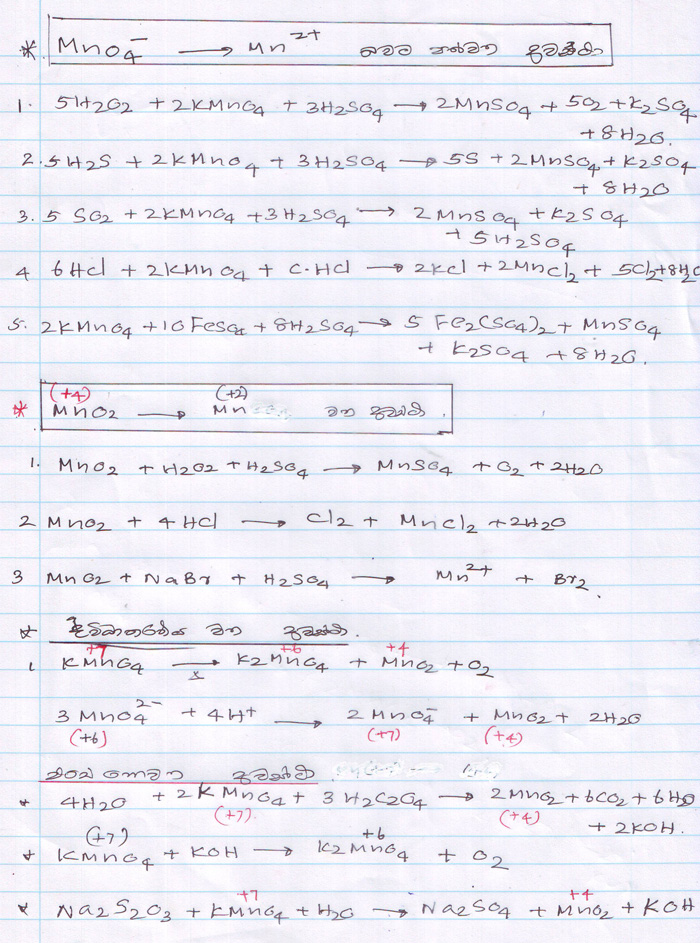 * MnO₄⁻ → Mn²⁺ බවට පත්වන අවස්ථා
1. 5H₂O₂ + 2KMnO₄ + 3H₂SO₄ → 2MnSO₄ + 5O₂ + K₂SO₄
+ 8H₂O.
2. 5H₂S + 2KMnO₄ + 3H₂SO₄ → 5S + 2MnSO₄ + K₂SO₄
+ 8H₂O
3. 5 SO₂ + 2KMnO₄ + 3H₂SO₄ → 2MnSO₄ + K₂SO₄
+ 5H₂SO₄
4 6HCl + 2KMnO₄ + C.HCl → 2KCl + 2MnCl₂ + 5Cl₂ + 8H₂O
5. 2KMnO₄ + 10FeSO₄ + 8H₂SO₄ → 5 Fe₂(SO₄)₂ + MnSO₄
+ K₂SO₄ + 8H₂O.
(+4) (+2)
* MnO₂ → Mn වන අවස්ථා.
1. MnO₂ + H₂O₂ + H₂SO₄ → MnSO₄ + O₂ + 2H₂O
2 MnO₂ + 4HCl → Cl₂ + MnCl₂ + 2H₂O
3 MnO₂ + NaBr + H₂SO₄ → Mn²⁺ + Br₂.
* ද්විධාකරණය වන අවස්ථා.
+7 +6 +4
1 KMnO₄ → K₂MnO₄ + MnO₂ + O₂
x
3 MnO₄²⁻ + 4H⁺ → 2MnO₄⁻ + MnO₂ + 2H₂O
(+6) (+7) (+4)
නොවන අවස්ථා
* 4H₂O + 2KMnO₄ + 3H₂C₂O₄ → 2MnO₂ + 6CO₂ + 6H₂O
(+7). (+4)
+ 2KOH.
(+7) +6
* KMnO₄ + KOH → K₂MnO₄ + O₂
+7 +4
* Na₂S₂O₃ + KMnO₄ + H₂O → Na₂SO₄ + MnO₂ + KOH